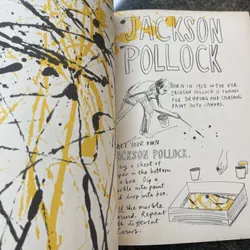 JACKSON
POLLOCK
BORN IN 1912 IN THE USA
JACKSON POLLOCK IS FAMOUS
FOR DRIPPING AND SPLASHING
PAINT ONTO CANVAS.
MAKE YOUR OWN
JACKSON POLLOCK.
a sheet of
in the bottom
box. Dip a
into paint
and drop into box.
the marble
around. Repeat
different